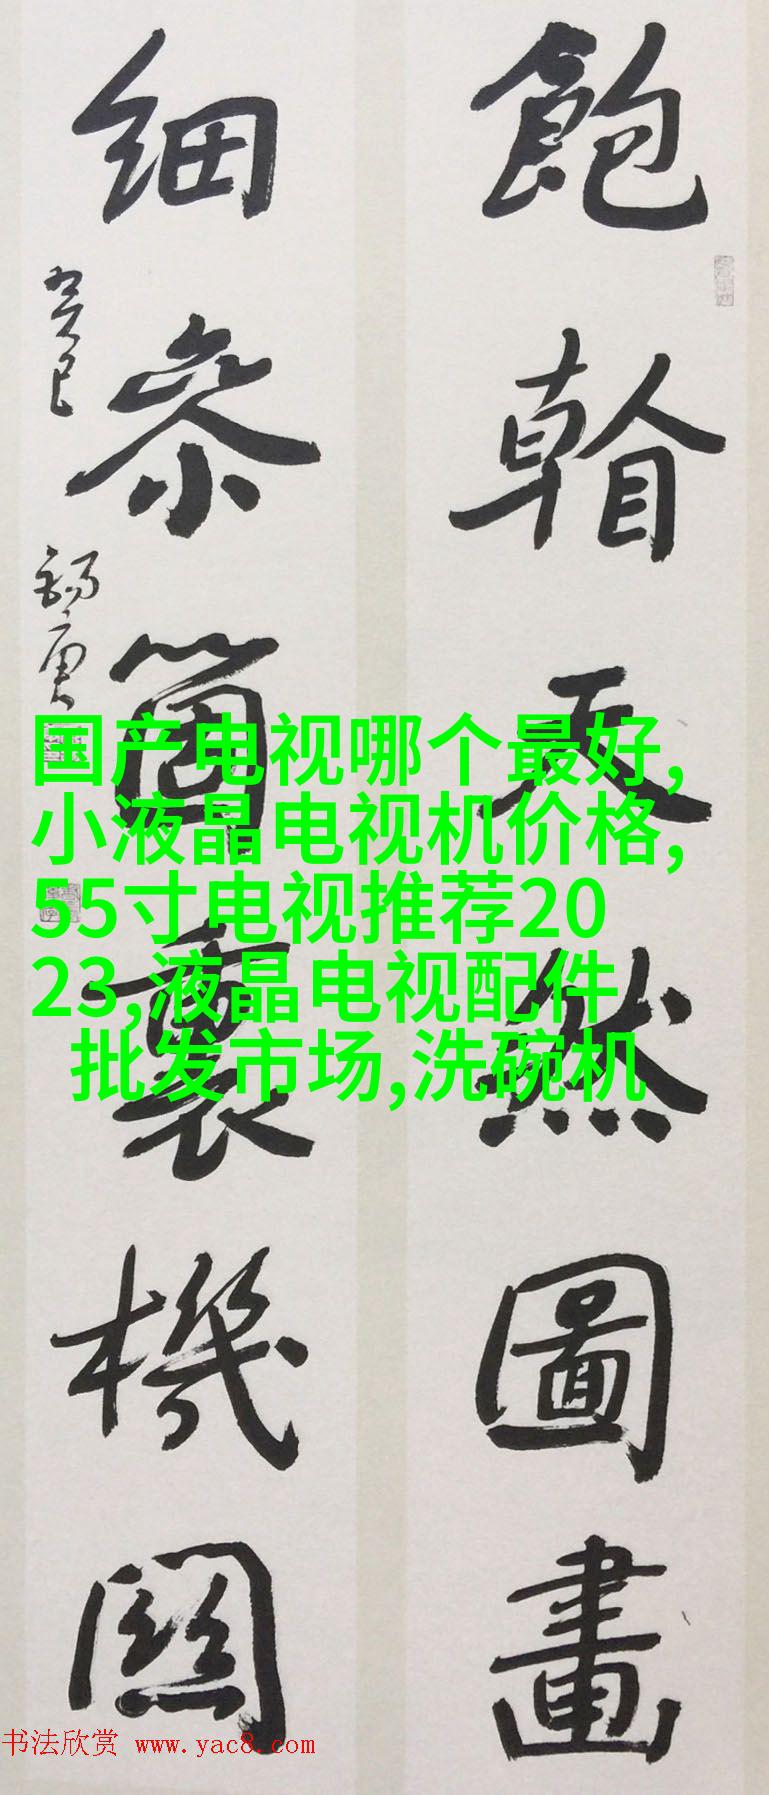 飽看天然圖畫
細參個裏機關
癸巳
錫庚
国产电视哪个最好,
小液晶电视机价格,
55寸电视推荐20
23,液晶电视配件
批发市场,洗碗机
书法欣赏 www.yac8.com